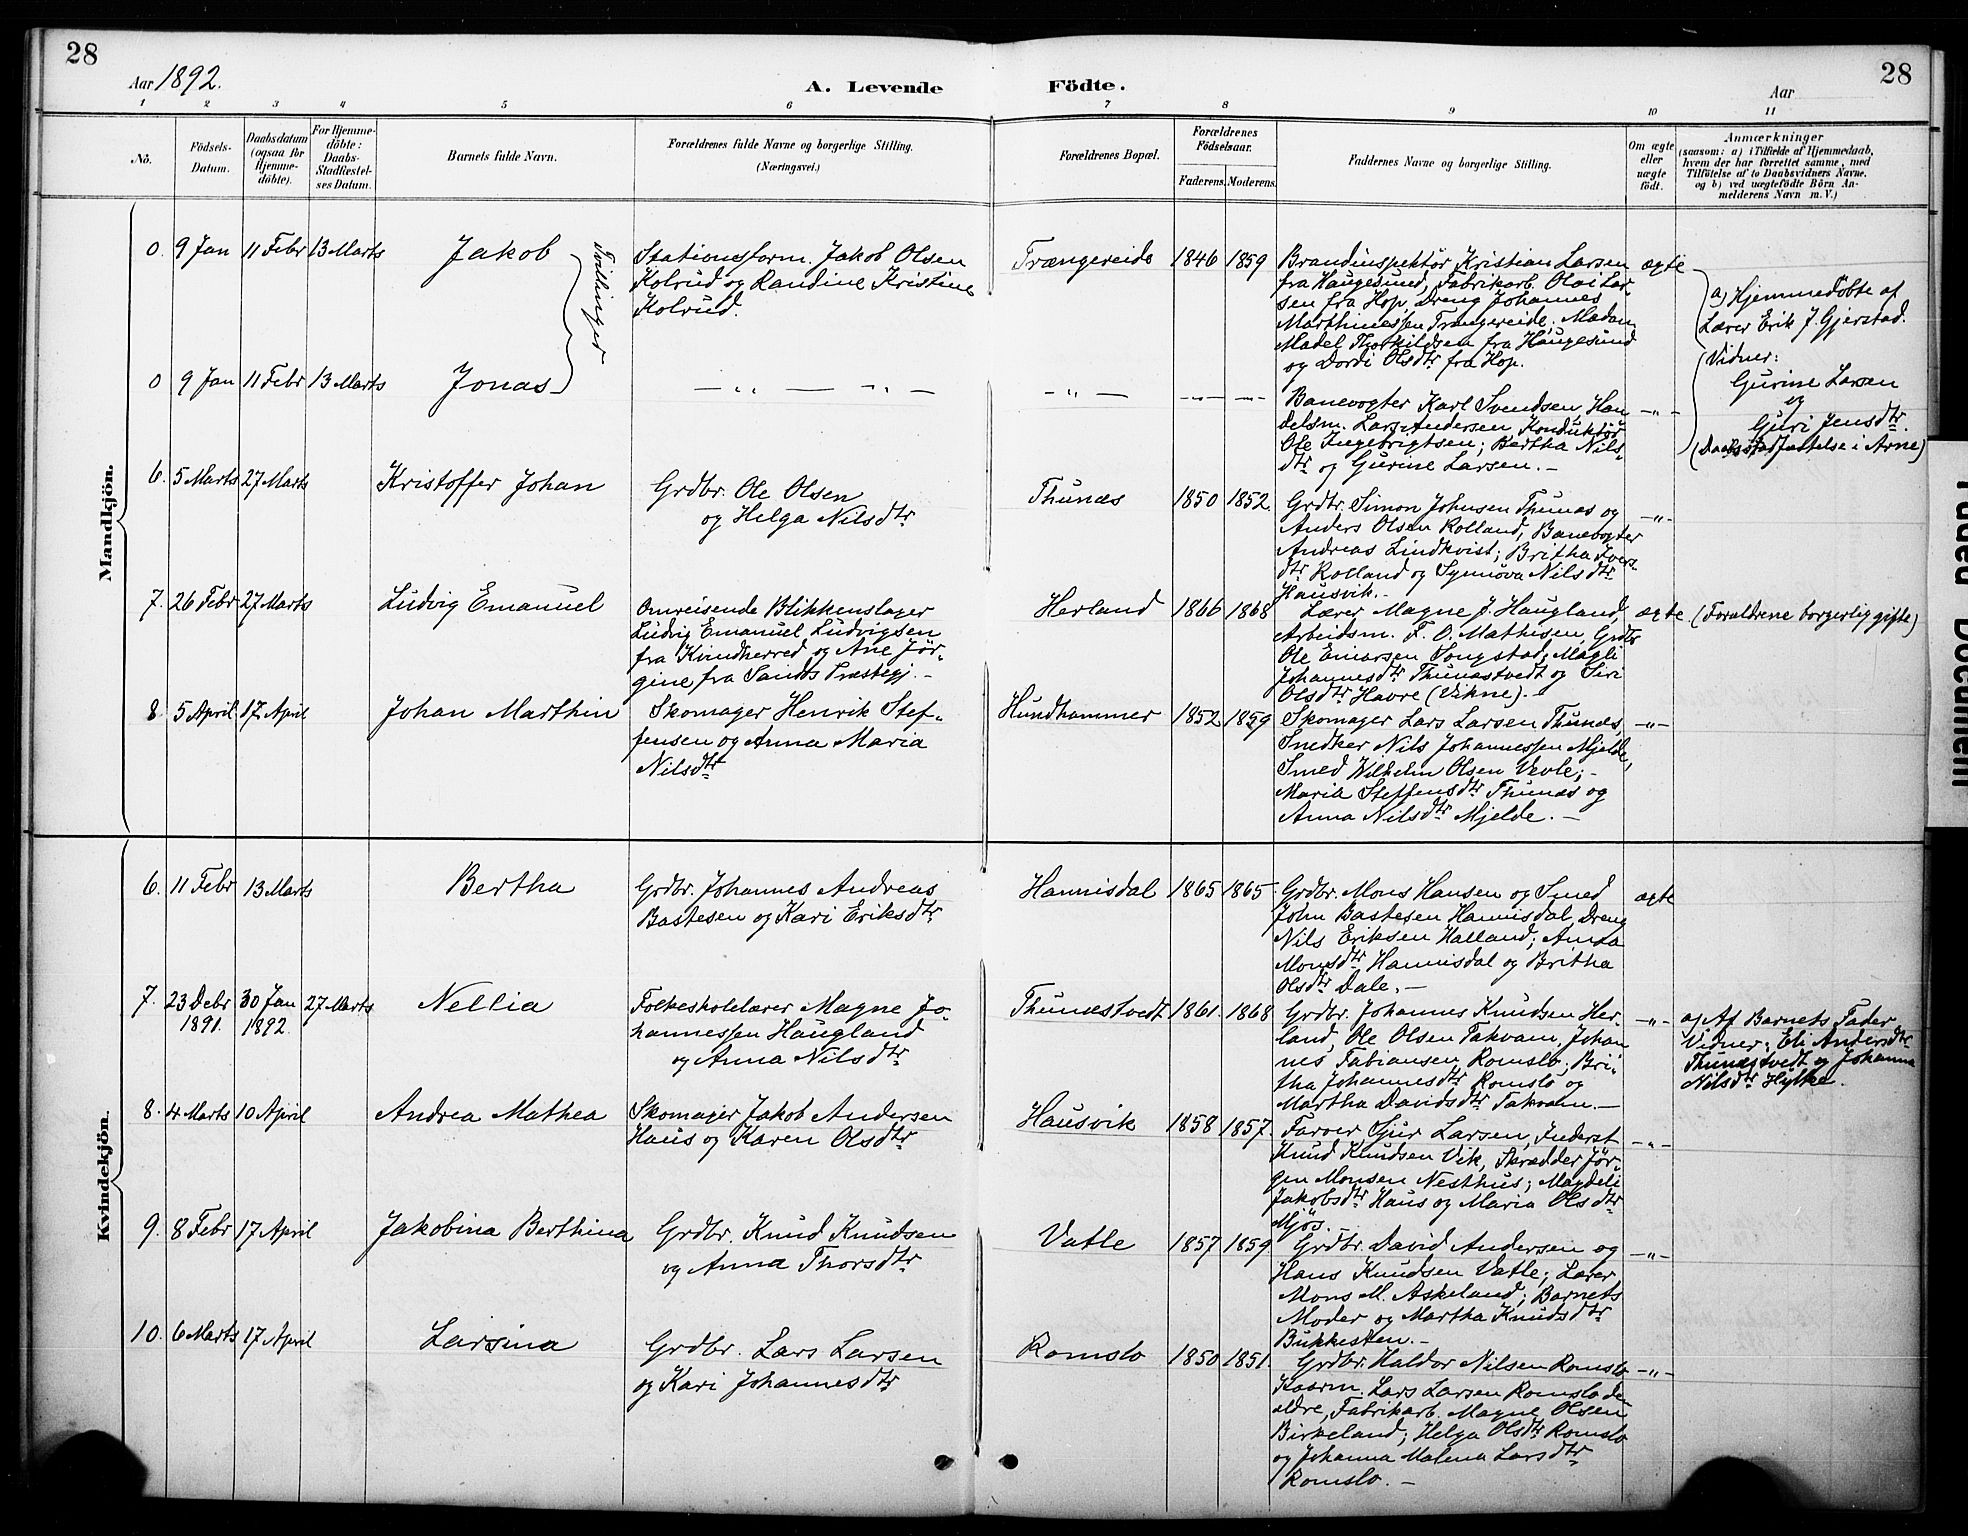 28
28
Aar 1892.
A. Levende
Födte.
Aar
1 2 3 4 5 6 7 8 9 10 11
No.
Födsels-
Datum.
Daabsdatum
(ogsaa for
Hjemme-
döbte).
For Hjemme-
döbte:
Daabs-
Stadfæstel-
ses Datum.
Barnets fulde Navn.
Forældrenes fulde Navne og borgerlige Stilling.
(Næringsvei.)
Forældrenes Bopæl.
Forældrenes
Födselsaar.
Faderens. Moderens.
Faddernes Navne og borgerlige Stilling.
Om ægte
eller
uægte
födt.
Anmærkninger
(saasom: a) i Tilfælde af Hjemmedaab,
hvem der har forrettet samme, med
Tilföielse af to Daabsvidners Navne.
og b) ved uægtefödte Börn An-
melderens Navn m. V.)
Mandkjön.
0. 9 Jan 11 Febr 13 Marts Jakob
Tvillinger
Stationsform. Jakob Olsen
Kolrud og Randine Kristine
Kolrud.
Trængereide 1846 1859
Brandinspektör Kristian Larsen
fra Haugesund, Fabrikarb. Olai Lar-
sen fra Hop, Dreng Johannes
Marthinessen Trængereide; Madam
Madel Thorkildsen fra Haugesund
og Dordi Olsdtr fra Hop.
ægte
a) Hjemmedöbte af
Lærer Erik J. Gjerstad.
Vidner:
Gurine Larsen
og
Guri Jensdtr.
(Daabsstadfæstelse i Arne)
0 9 Jan 11 Febr 13 Marts Jonas — „ — „ —
— „ — — „ — — „ —
Banevogter Karl Svendsen, Han-
delsm. Lars Andersen, Konduktör
Ole Ingebrigtsen; Bertha Nils-
dtr og Gurine Larsen. —
— „ —
6. 5 Marts 27 Marts Kristoffer Johan
Grdbr. Ole Olsen
og Helga Nilsdtr
Thunæs 1850 1852.
Grdbr. Simon Johnsen Thunæs og
Anders Olsen Rolland, Banevogter
Andreas Lindkvist; Britha Ivers-
dtr Rolland og Synnöva Nilsdtr
Hausvik. —
— „ —
7. 26 Febr 27 Marts Ludvig Emanuel
Omreisende Blikkenslager
Ludvig Emanuel Ludvigsen
fra Kvindherred og Ane Jör-
gine fra Sands Præstegj. —
Herland 1866 1868
Lærer Magne J. Haugland,
Arbeidsm. F. O. Mathisen, Grdbr
Ole Einarsen Songstad; Magli
Johannesdtr Thunæstvedt og Siri
Olsdtr Havre (Vikne). —
ægte (Forældrene borgerlig gifte)
8. 5 April 17 April Johan Marthin
Skomager Henrik Stef-
fensen og Anna Maria
Nilsdtr
Hundhammer 1852 1859
Skomager Lars Larsen Thunæs,
Snedker Nils Johannessen Mjelde,
Smed Wilhelm Olsen Vevle; —
Marik Steffensdtr Thunæs og
Anna Nilsdtr Mjelde. —
— „ —
Kvindekjön.
6. 11 Febr 13 Marts Bertha
Grdbr. Johannes Andreas
Bastesen og Kari Eriksdtr
Hannisdal 1865 1865
Grdbr. Mons Hansen og Smed
John Bastesen Hannisdal, Dreng
Nils Eriksen Halland; Anna
Monsdtr Hannisdal og Britha
Olsdtr Dale. —
ægte
7. 23 Debr 1891. 30 Jan 1892. 27 Marts Nellia
Folkeskolelærer Magne Jo-
hannessen Haugland
og Anna Nilsdtr
Thunæstvedt 1861. 1868
Grdbr. Johannes Knudsen Her-
land, Ole Olsen Takvam, Johan-
nes Fabiansen Romslo; Bri-
tha Johannesdtr Romslo og
Martha Davidsdtr Takvam. —
— „ —
a) Af Barnets Fader
Vidner: Eli Andersdtr
Thunæstvedt og Johanna
Nilsdtr Hylke.
8. 4 Marts 10 April Andrea Mathea
Skomager Jakob Andersen
Haus og Karen Olsdtr
Hausvik 1858 1857.
Farver Sjur Larsen, Inderst
Knud Knudsen Vik, Skrædder Jör-
gen Monsen Nesthus; Magdeli
Jakobsdtr Haus og Maria Olsdtr
Mjös. —
— „ —
9. 8 Febr 17 April Jakobina Berthina
Grdbr. Knud Knudsen
og Anna Thorsdtr
Vatle 1857 1859
Grdbr. David Andersen og
Hans Knudsen Vatle; Lærer
Mons M. Askeland; Barnets
Moder og Martha Knudsdtr
Bukkesten. —
— „ —
10. 6 Marts 17 April Larsina
Grdbr. Lars Larsen
og Kari Johannesdtr
Romslo 1850 1851.
Grdbr. Haldor Nilsen Romslo
Kaarm. Lars Larsen Romslo de
ældre, Fabrikarb. Magne Olsen
Birkeland; Helga Olsdtr Romslo
og Johanna Malena Larsdtr
Romslo. —
— „ —